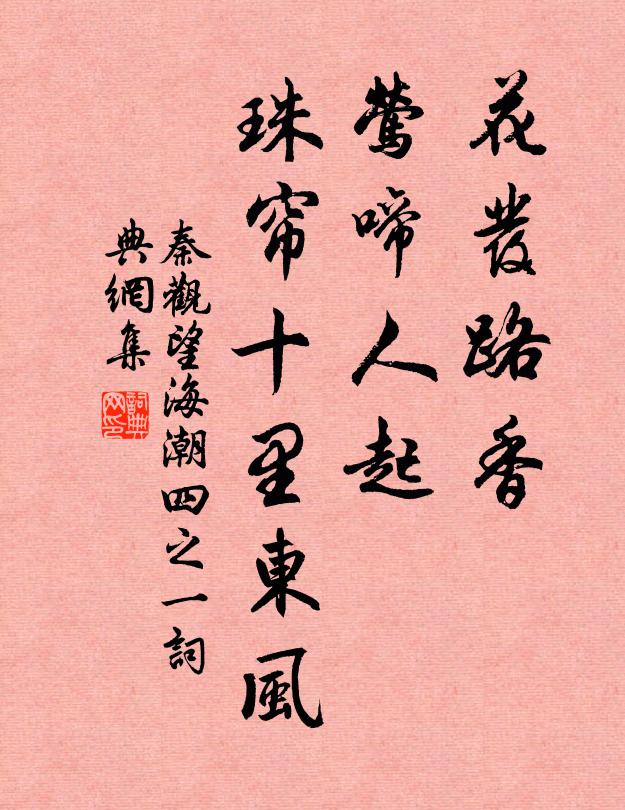 花發路香
鶯啼人起
珠帘十里東風
秦觀望海潮四之一詞
典網集
詞典
网印